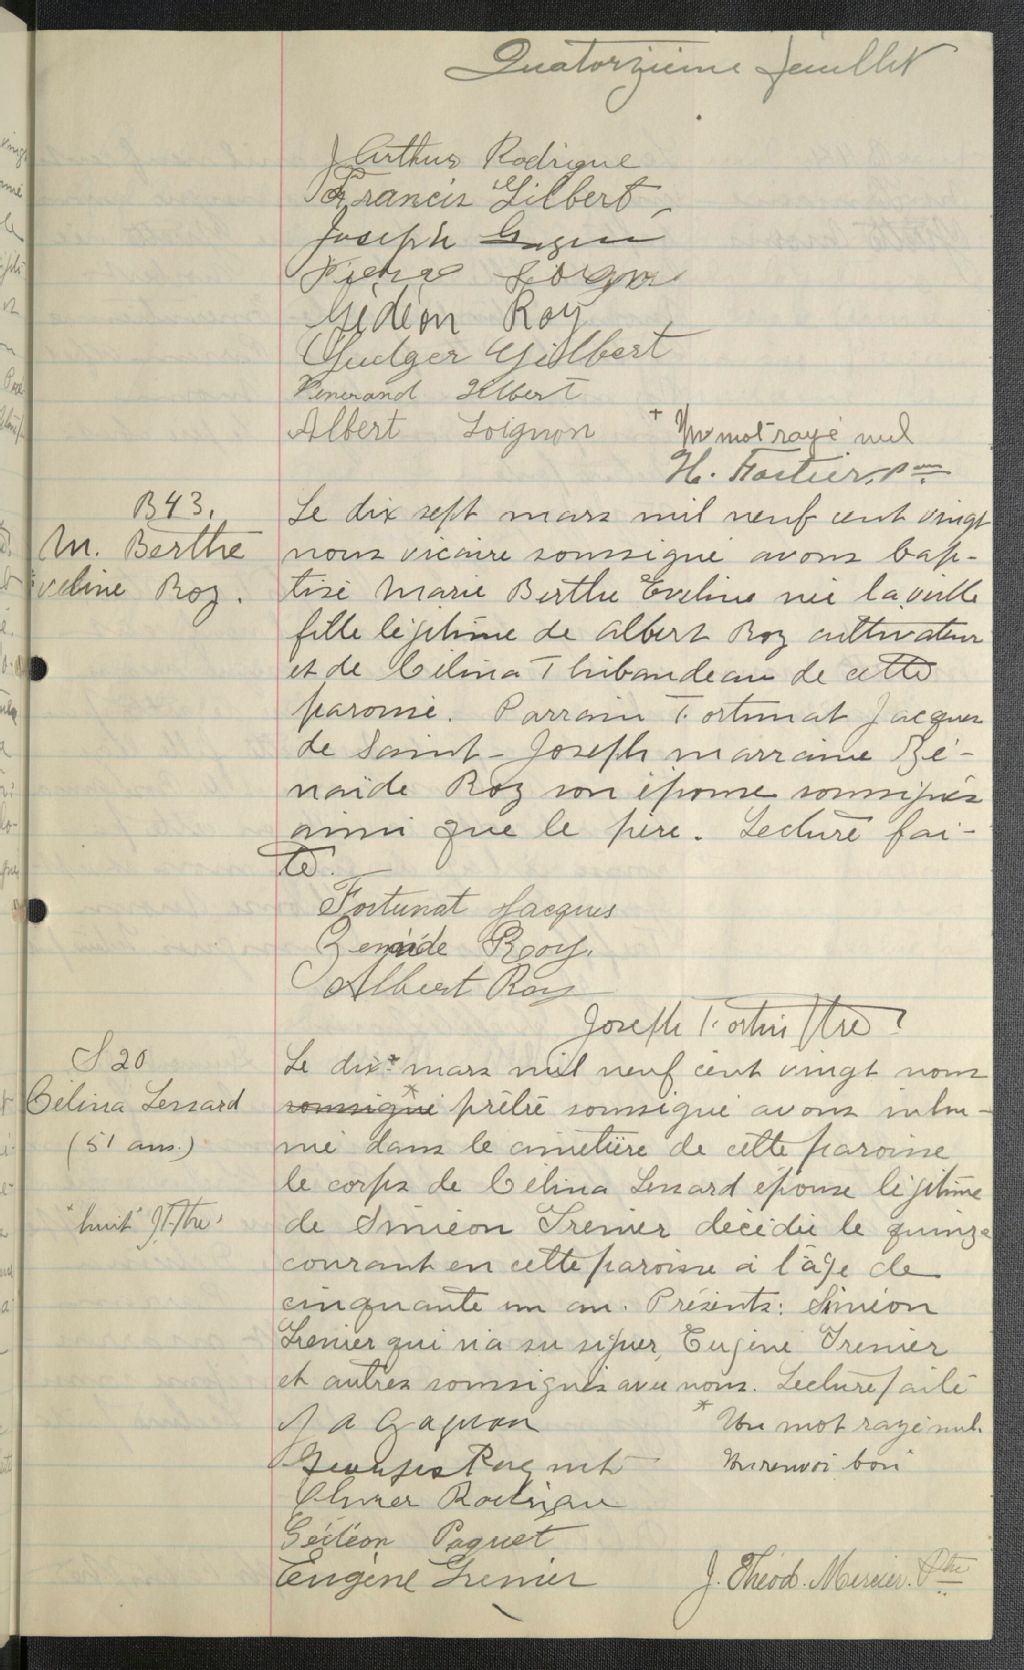 Quatorzième feuillet
J Arthur Rodrigue
Francis Gilbert
Joseph
Gédéon Roy
Gudger Gilbert
Venerand Gilbert
Albert Loignon
+ Un mot rayé nul
H. Fortier, P
B 43.
M. Berthe
Eveline Roy.
Le dix sept mars mil neuf cent vingt
nous vicaire soussigné avons bap-
tisé Marie Berthe Eveline née la veille
fille légitime de Albert Roy cultivateur
et de Célina Thibaudeau de cette
paroisse. Parrain Fortunat Jacques
de Saint-Joseph marraine Zé-
naïde Roy son épouse soussignés
ainsi que le père. Lecture fai-
te.
Fortunat Jacques
Zenaïde Roy.
Albert Roy
Joseph Fortin Ptre
S 20
Célina Lessard
(51 ans.)
* "huit" J.F. Ptre
Le dix * mars mil neuf cent vingt nous
soussigné * prêtre soussigné avons inhu-
mé dans le cimetière de cette paroisse
le corps de Célina Lessard épouse légitime
de Siméon Grenier décédée le quinze
courant en cette paroisse à l'âge de
cinquante un an. Présents: Siméon
Grenier qui n'a su signer, Eugène Grenier
et autres soussignés avec nous. Lecture faite
J A Gagnon
* Un mot rayé nul.
Un renvoi bon
Georges Paquet
Rodrigue
Gédéon Paquet
Eugène Grenier
J. Théod. Mercier. Ptre